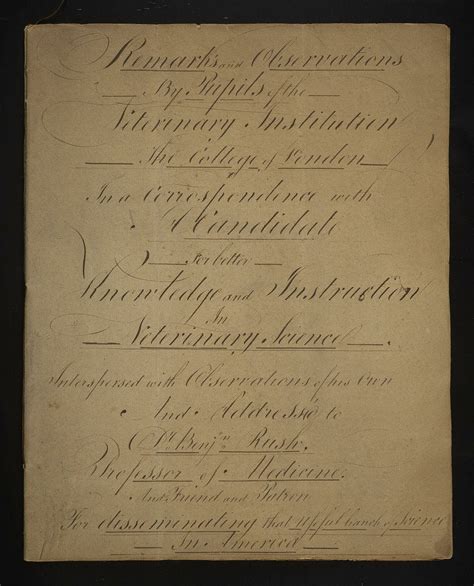 Remarks and Observations
— By Pupils of the —
Veterinary Institution
— The College of London —
In a Correspondence with
A Candidate
— For better —
Knowledge and Instruction
In
— Veterinary Science —.
Interspersed with Observations of his Own
And Address'd to
Dr. Benjn Rush.
Professor of Medicine.
And Friend and Patron
For disseminating that useful branch of Science
— In America —